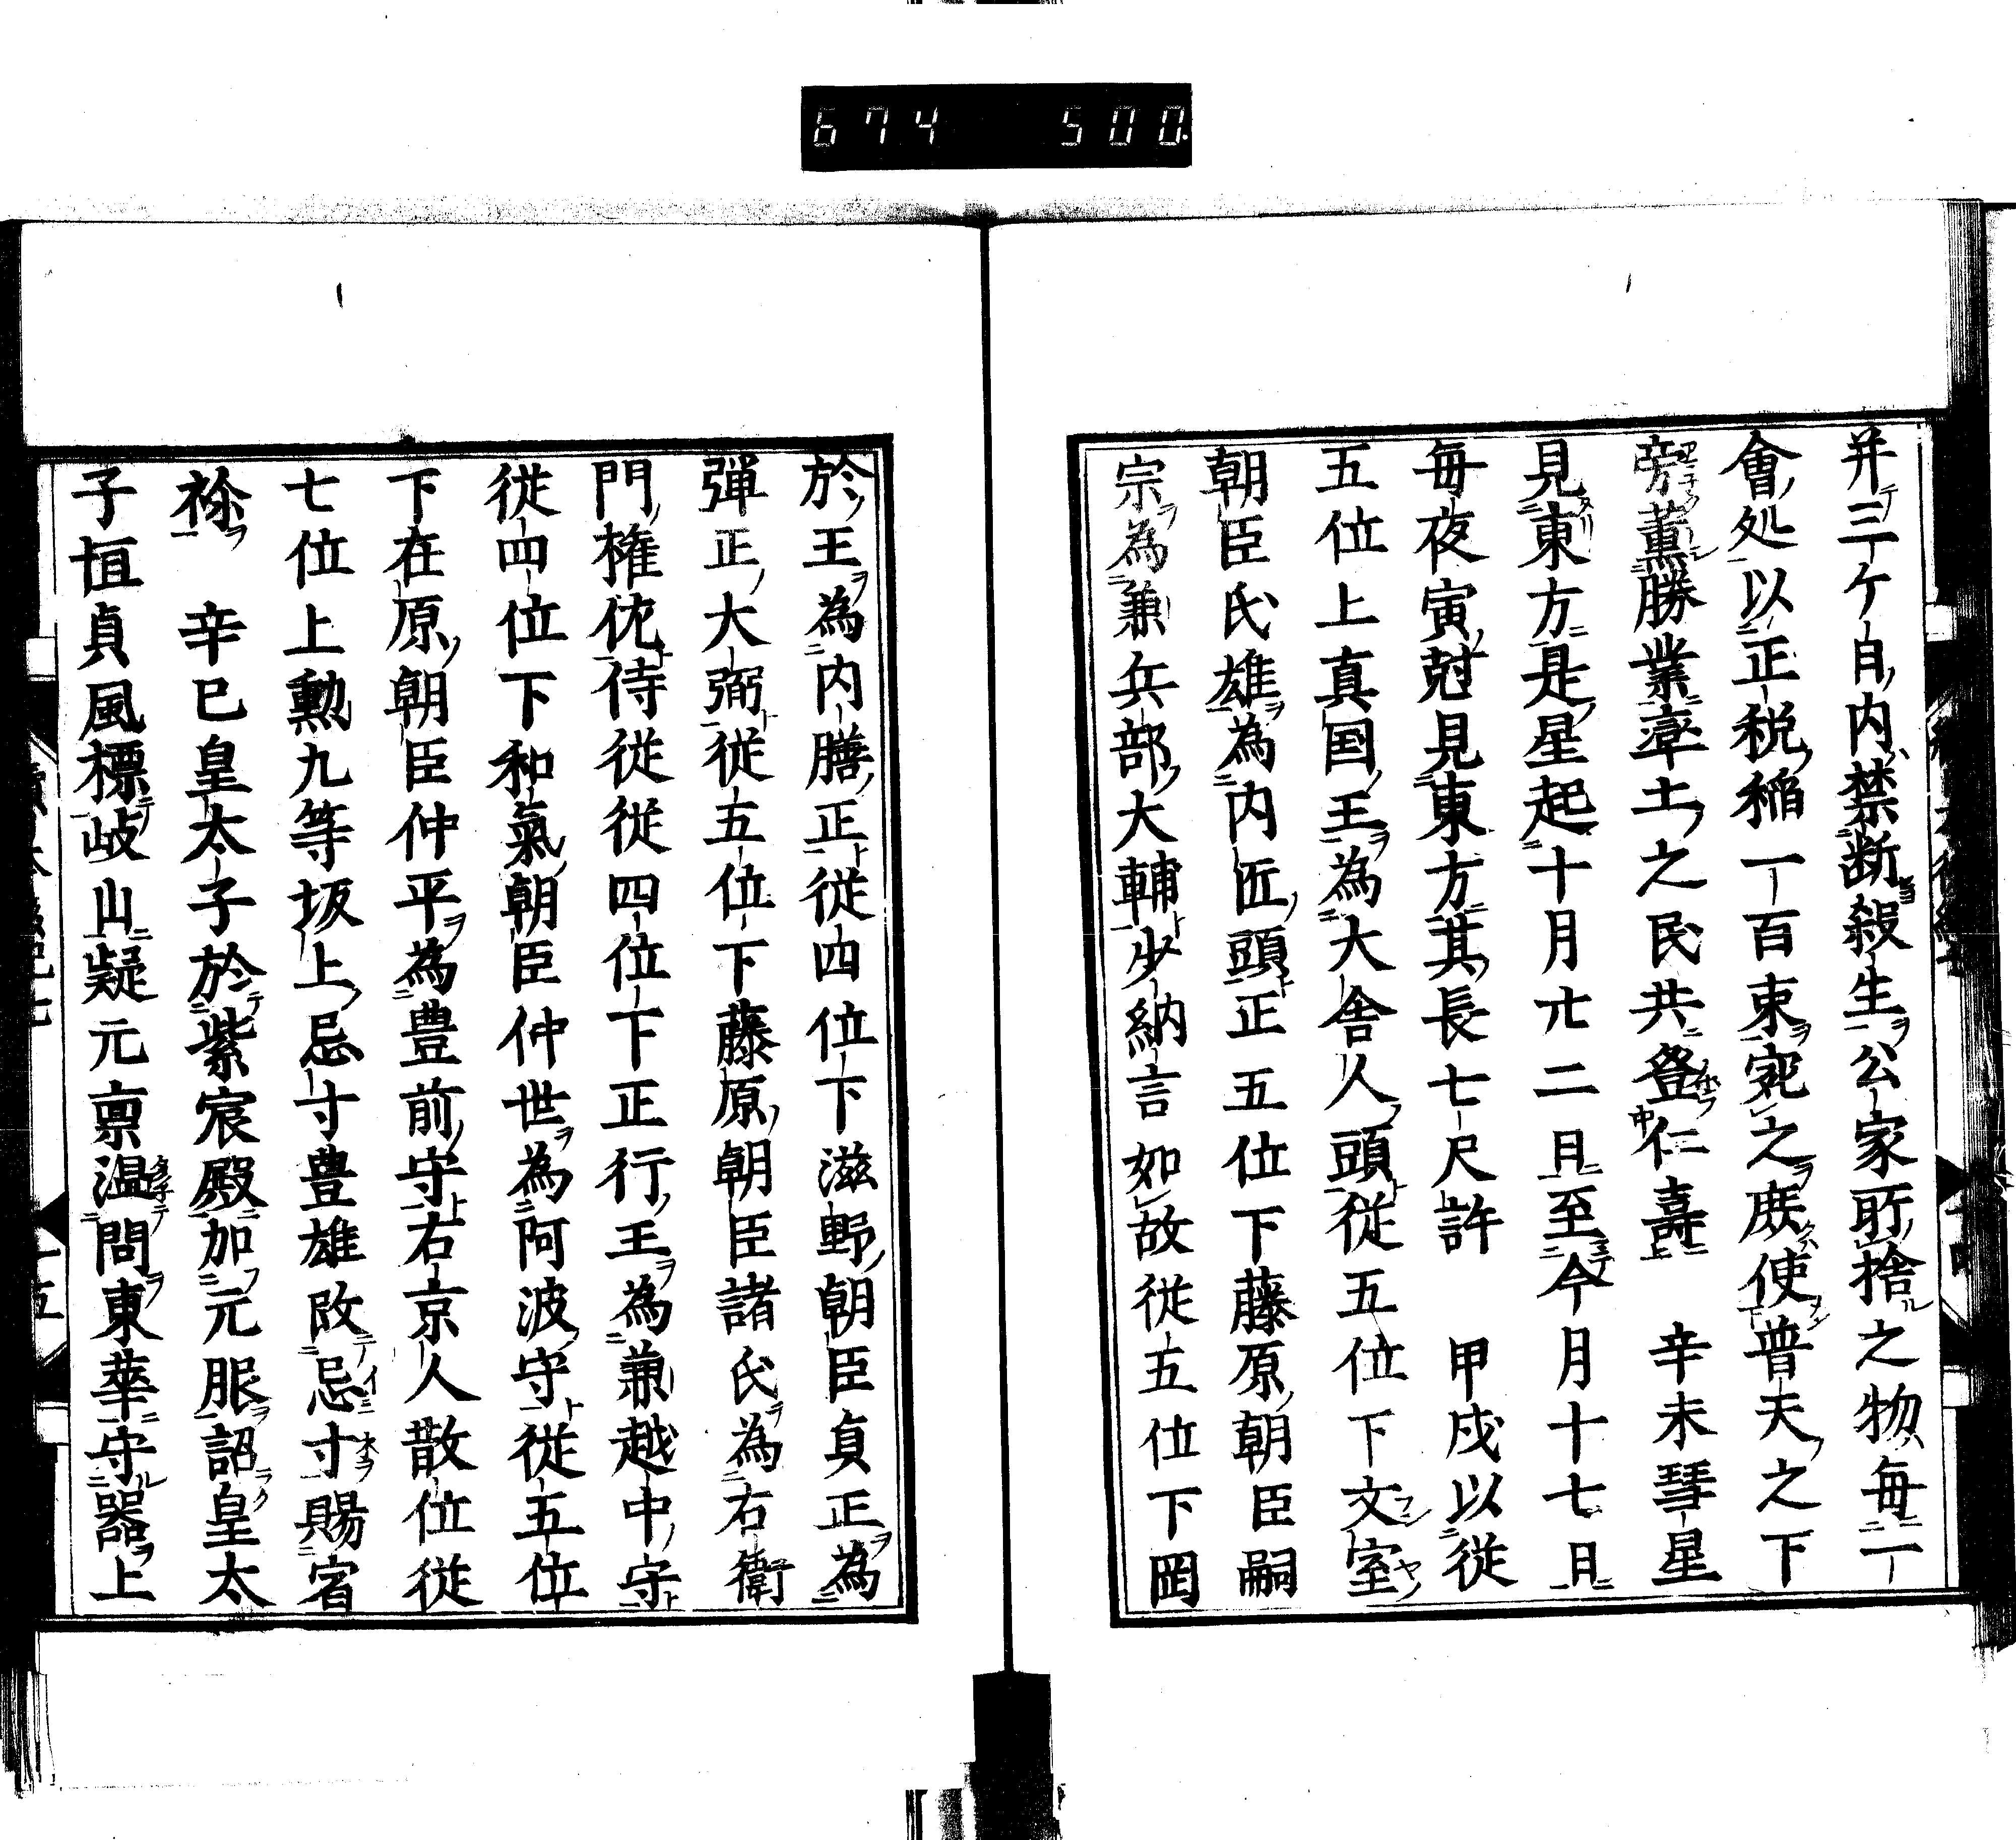 674 500
并三ケ日内禁断殺生公家所捨之物毎一
會処以正税稲一百束宛之庶使普天之下
旁薫勝業率土之民共登仁壽 辛未彗星
見東方是星起十月廿二日至今月十七日
毎夜寅尅見東方其長七尺許 甲戌以従
五位上真国王為大舎人頭従五位下文室
朝臣氏雄為内匠頭正五位下藤原朝臣嗣
宗為兼兵部大輔少納言如故従五位下岡
於王為内膳正従四位下滋野朝臣貞正為
弾正大弼従五位下藤原朝臣諸氏為右衛
門権佐侍従従四位下正行王為兼越中守
従四位下和氣朝臣仲世為阿波守従五位
下在原朝臣仲平為豊前守右京人散位従
七位上勲九等坂上忌寸豊雄改忌寸賜宿
祢 辛巳皇太子於紫宸殿加元服詔皇太
子恒貞風標岐山疑元禀温問東華守器上